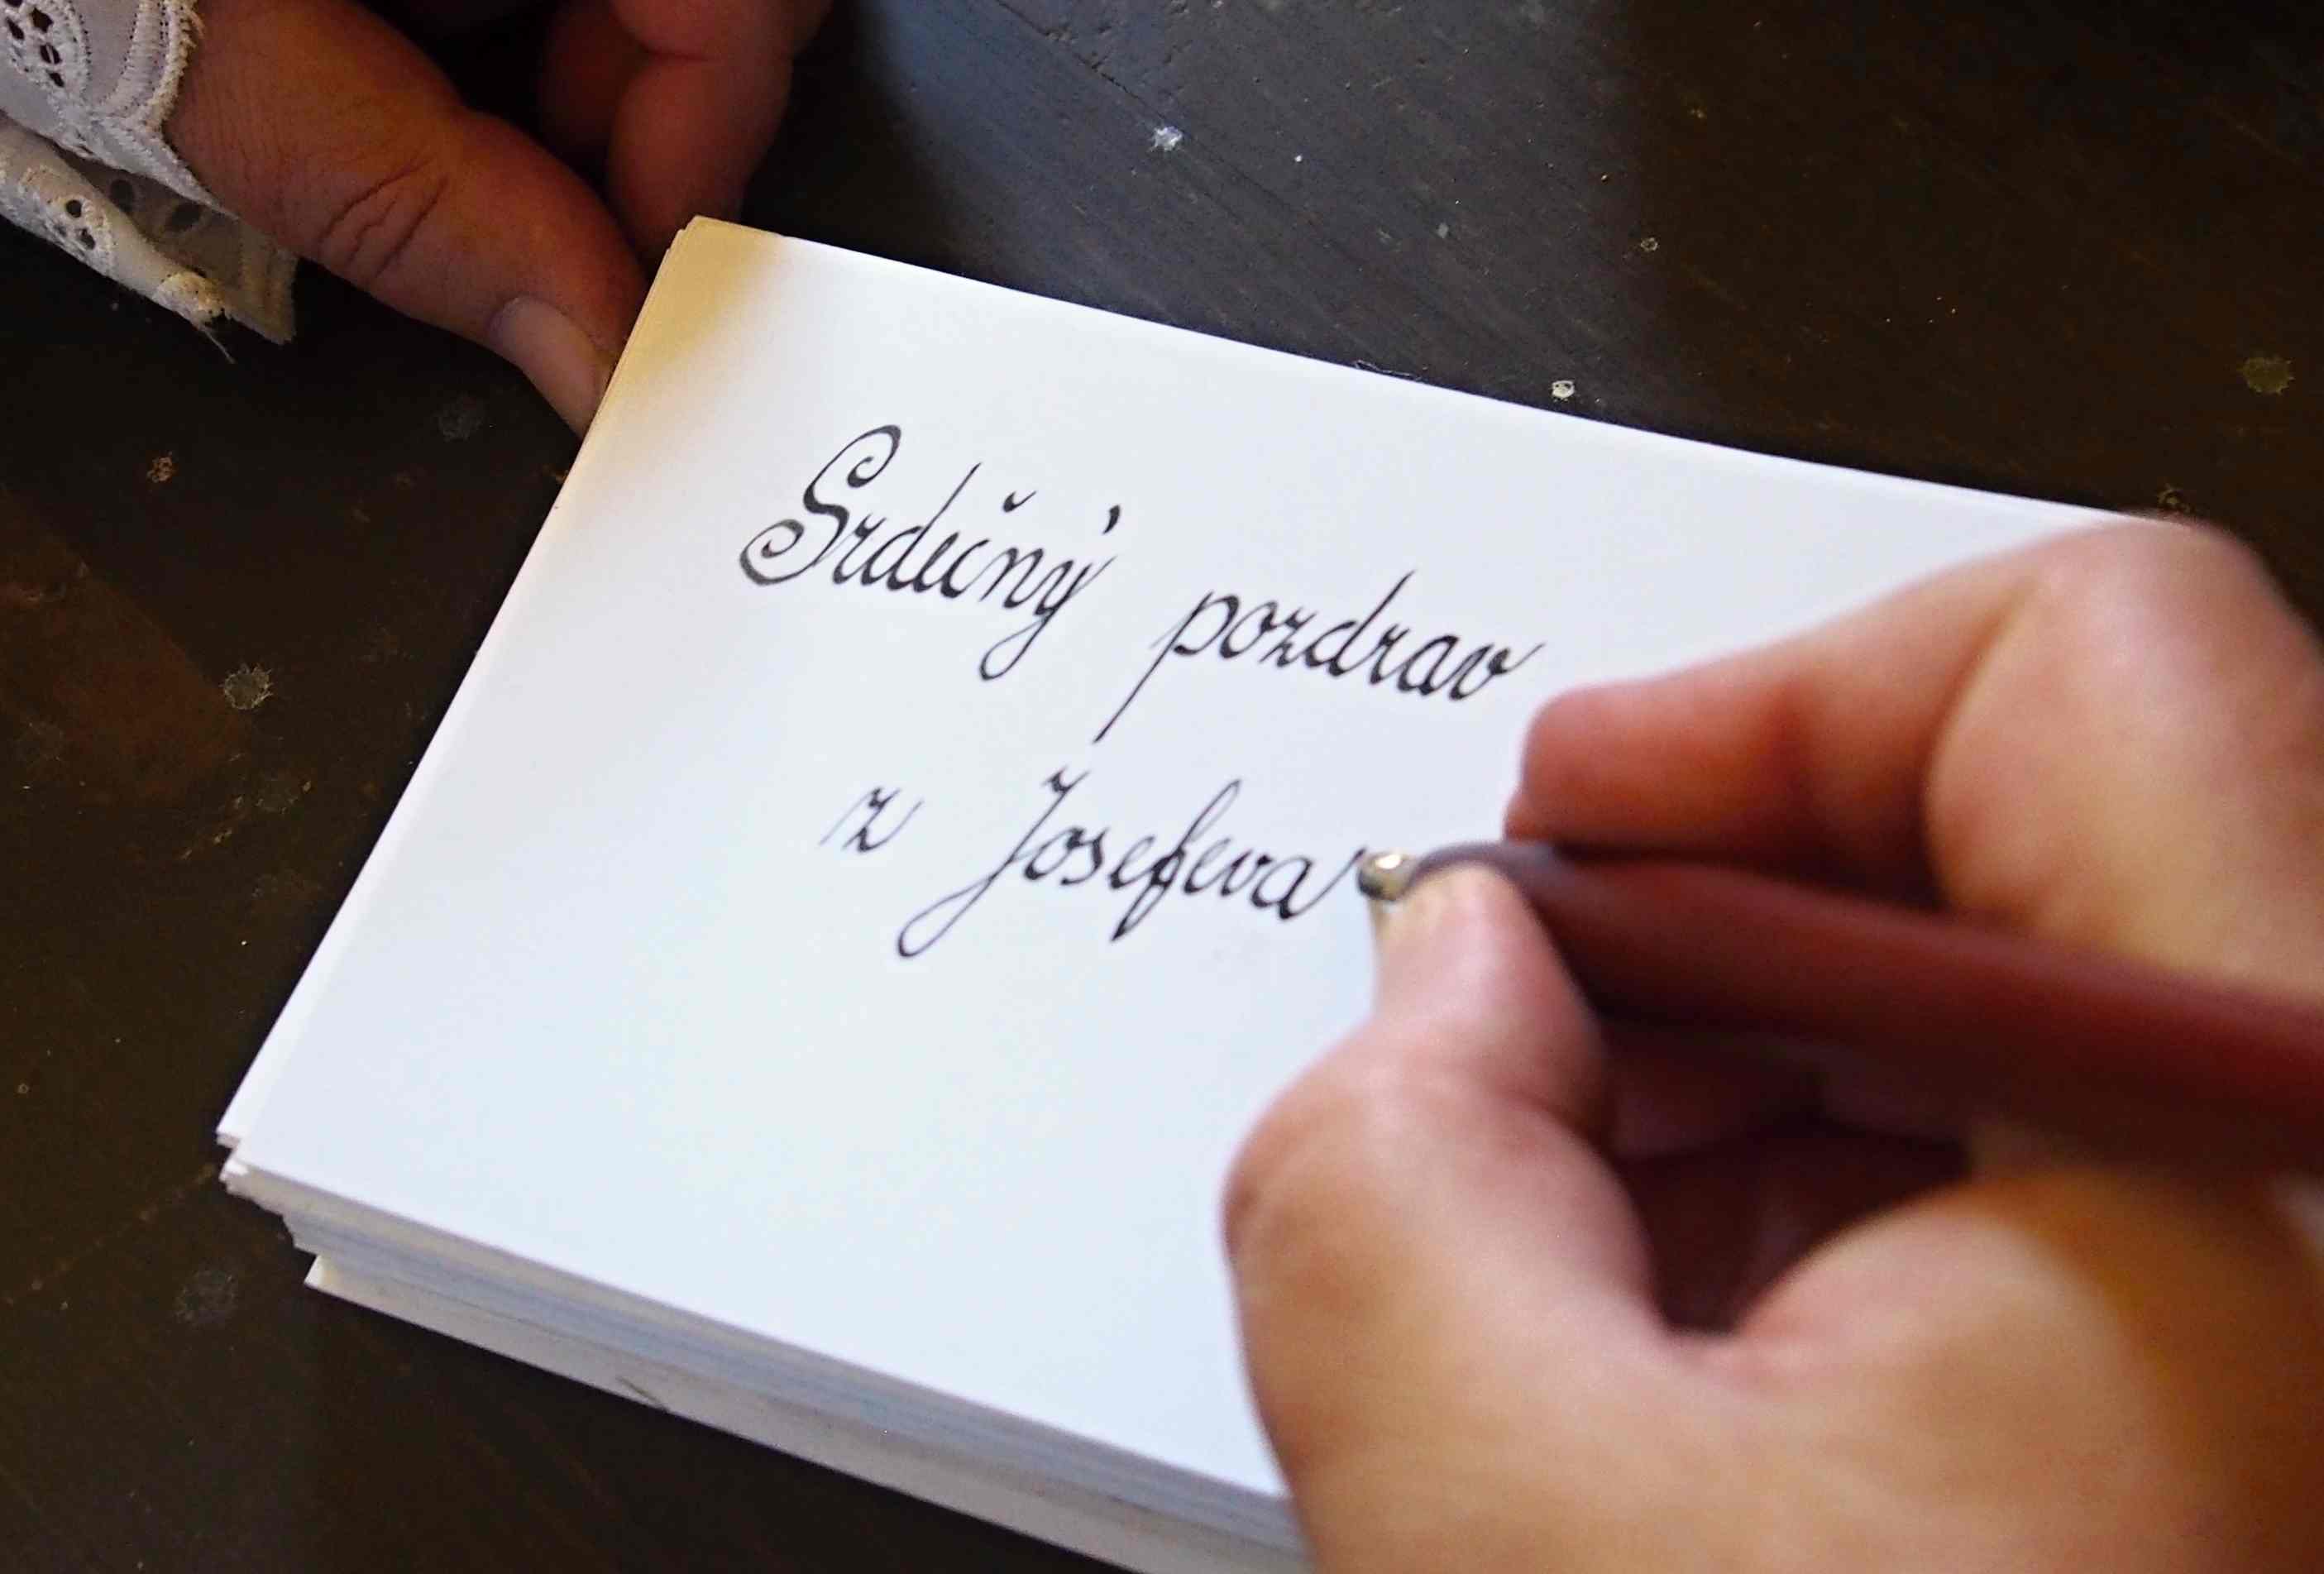 Srdečný pozdrav
z Josefova